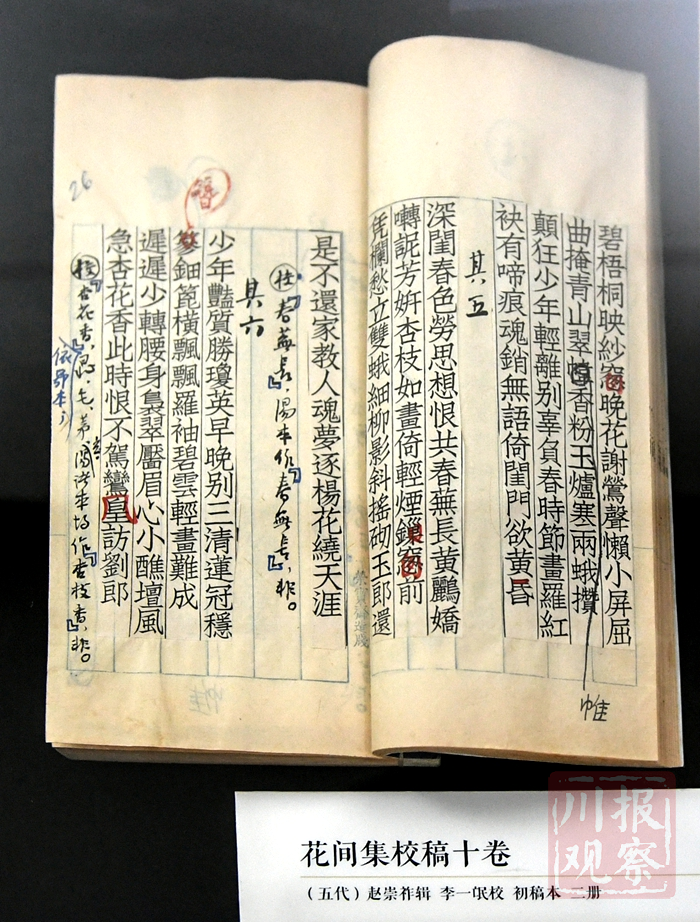 碧梧桐映紗窗晚花謝鶯聲懶小屏屈
曲掩青山翠香粉玉爐寒兩蛾攢
帷
顛狂少年輕離别辜負春時節畫羅紅
袂有啼痕魂銷無語倚閨門欲黃昏
其五
深閨春色勞思想恨共春蕪長黃鸝嬌
囀詑芳妍杏枝如畫倚輕煙鎖窗前
凭欄愁立雙蛾細柳影斜摇砌玉郎還
是不還家教人魂夢逐楊花繞天涯
校『春蕪長』,湯本作『春無長』,非。
其六
少年豔質勝瓊英早晚别三清蓮冠穩
簪
篸鈿篦橫飄飄羅袖碧雲輕畫難成
遲遲少轉腰身裊翠靨眉心小醮壇風
急杏花香此時恨不駕鸞凰訪劉郎
校『杏花香』,作『杏枝香』,非。
26
花间集校稿十卷
（五代）赵崇祚辑 李一氓校 初稿本 二册
川报观察